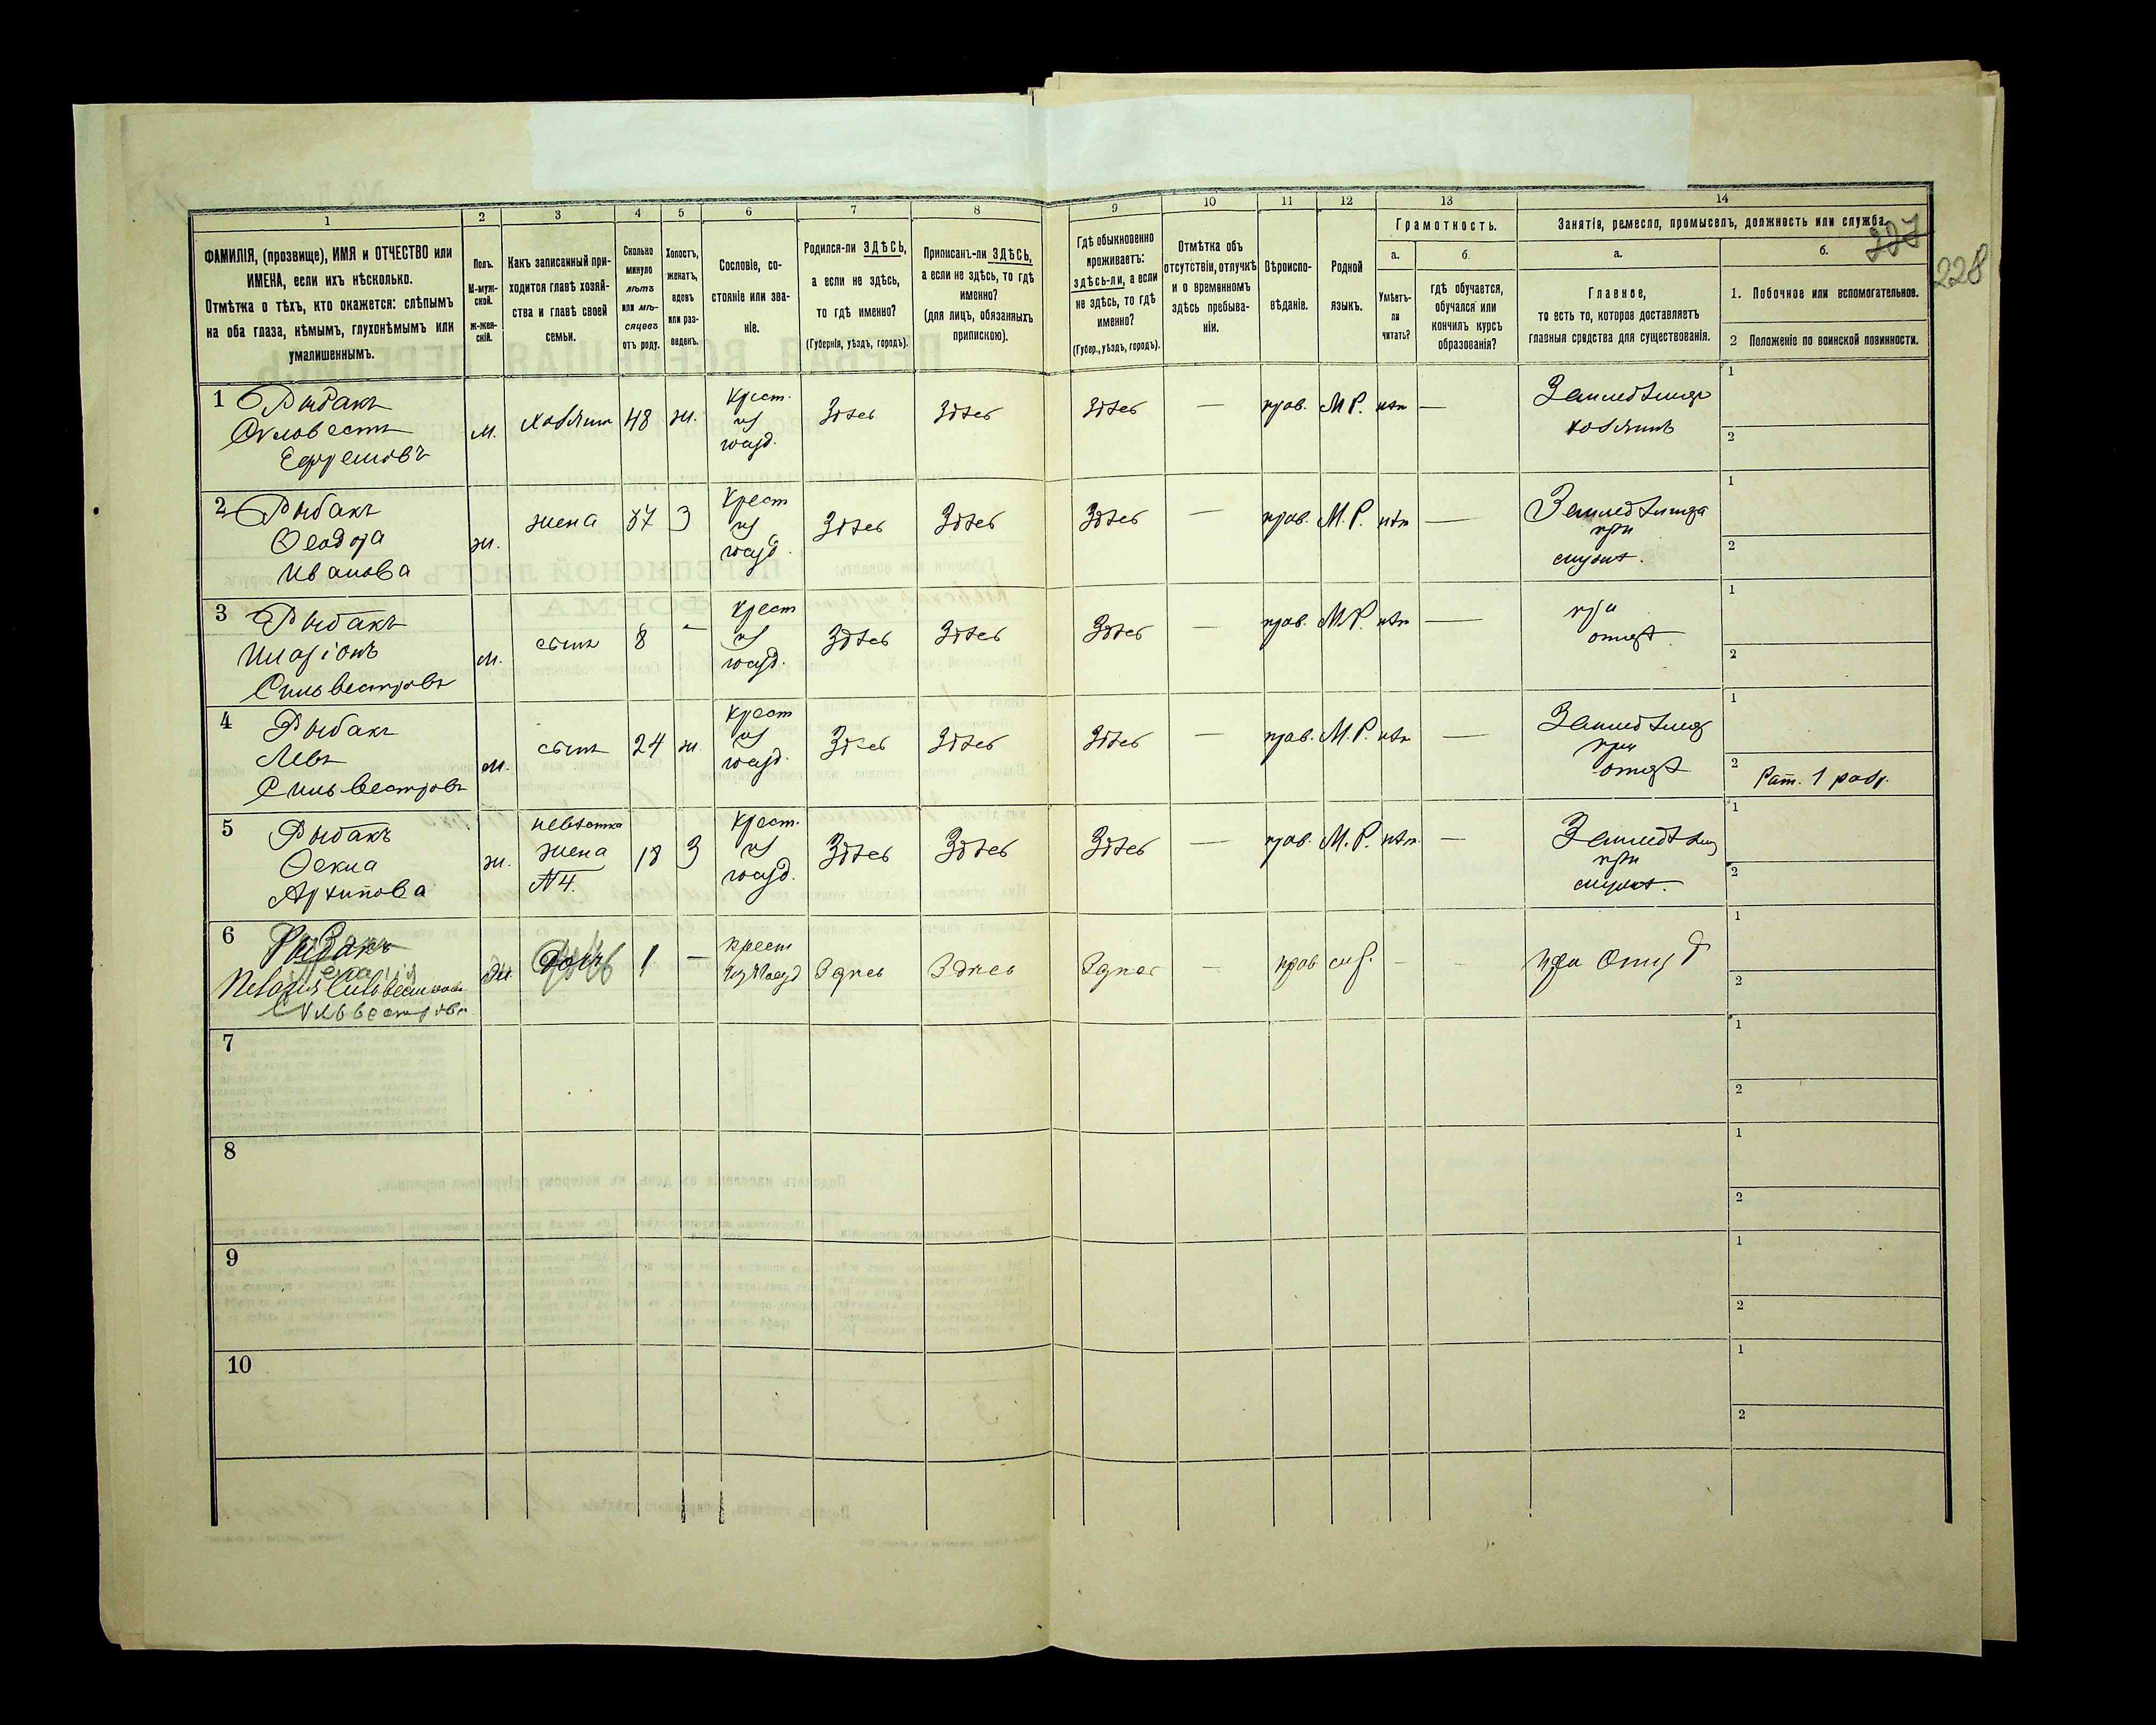 1 2 3 4 5 6 7 8 9 10 11 12 13 14
ФАМИЛІЯ, (прозвище), ИМЯ и ОТЧЕСТВО или
ИМЕНА, если ихъ нѣсколько.
Отмѣтка о тѣхъ, кто окажется: слѣпымъ
на оба глаза, нѣмымъ, глухонѣмымъ или
умалишеннымъ.
Полъ.
М-муж-
ской.
ж-жен-
скій.
Какъ записанный при-
ходится главѣ хозяй-
ства и главѣ своей
семьи.
Сколько
минуло
лѣтъ
или мѣ-
сяцевъ
отъ роду.
Холостъ,
женатъ,
вдовъ
или раз-
веденъ.
Сословіе, со-
стояніе или зва-
ніе.
Родился-ли ЗДѢСЬ,
а если не здѣсь,
то гдѣ именно?
(Губернія, уѣздъ, городъ).
Приписанъ-ли ЗДѢСЬ,
а если не здѣсь, то гдѣ
именно?
(для лицъ, обязанныхъ
припискою).
Гдѣ обыкновенно
проживаетъ:
здѣсь-ли, а если
не здѣсь, то гдѣ
именно?
(Губер., уѣздъ, городъ).
Отмѣтка объ
отсутствіи, отлучкѣ
и о временномъ
здѣсь пребыва-
ніи.
Вѣроиспо-
вѣданіе.
Родной
языкъ.
Грамотность.
а.
Умѣетъ-
ли
читать?
б.
гдѣ обучается,
обучался или
кончилъ курсъ
образованія?
Занятія, ремесло, промыселъ, должность или служба.
а.
Главное,
то есть то, которое доставляетъ
главныя средства для существованія.
б.
1. Побочное или вспомогательное.
2 Положеніе по воинской повинности.
227
228
1 Рыбакъ
Ефремовъ
м.
хозяинъ
48
ж.
Крест.
из
влад.
Здѣсь
Здѣсь
Здѣсь
—
прав.
М.Р.
нѣт
—
хозяинъ
1
2
2 Рыбакъ
Ѳеодора
Иванова
ж.
жена
37
З
Крест
из
влад.
Здѣсь
Здѣсь
Здѣсь
—
прав.
М.Р.
нѣт
—
при
мужѣ.
1
2
3 Рыбакъ
Иларіонъ
Сильвестровъ
м.
сынъ
8
-
Крест
из
влад.
Здѣсь
Здѣсь
Здѣсь
—
прав.
М.Р.
нѣт
—
при
отцѣ
1
2
4 Рыбакъ
Левъ
Сильвестровъ
м.
сынъ
24
ж.
Крест
из
влад.
Здѣсь
Здѣсь
Здѣсь
—
прав.
М.Р.
нѣт
—
при
отцѣ
1
2 Рат. 1 разр.
5 Рыбакъ
Ѳекла
Архипова
ж.
невѣстка
жена
№4.
18
З
Крест.
из
влад.
Здѣсь
Здѣсь
Здѣсь
—
прав.
М.Р.
нѣт.
—
при
мужѣ.
1
2
6 Рыбакъ
Пелагія Сильвестрова
Сильвестрова
ж.
дочь
1
—
крест
Здѣсь
Здѣсь
Здѣсь
-
прав
-
-
при отцѣ
1
2
7
1
2
8
1
2
9
1
2
10
1
2